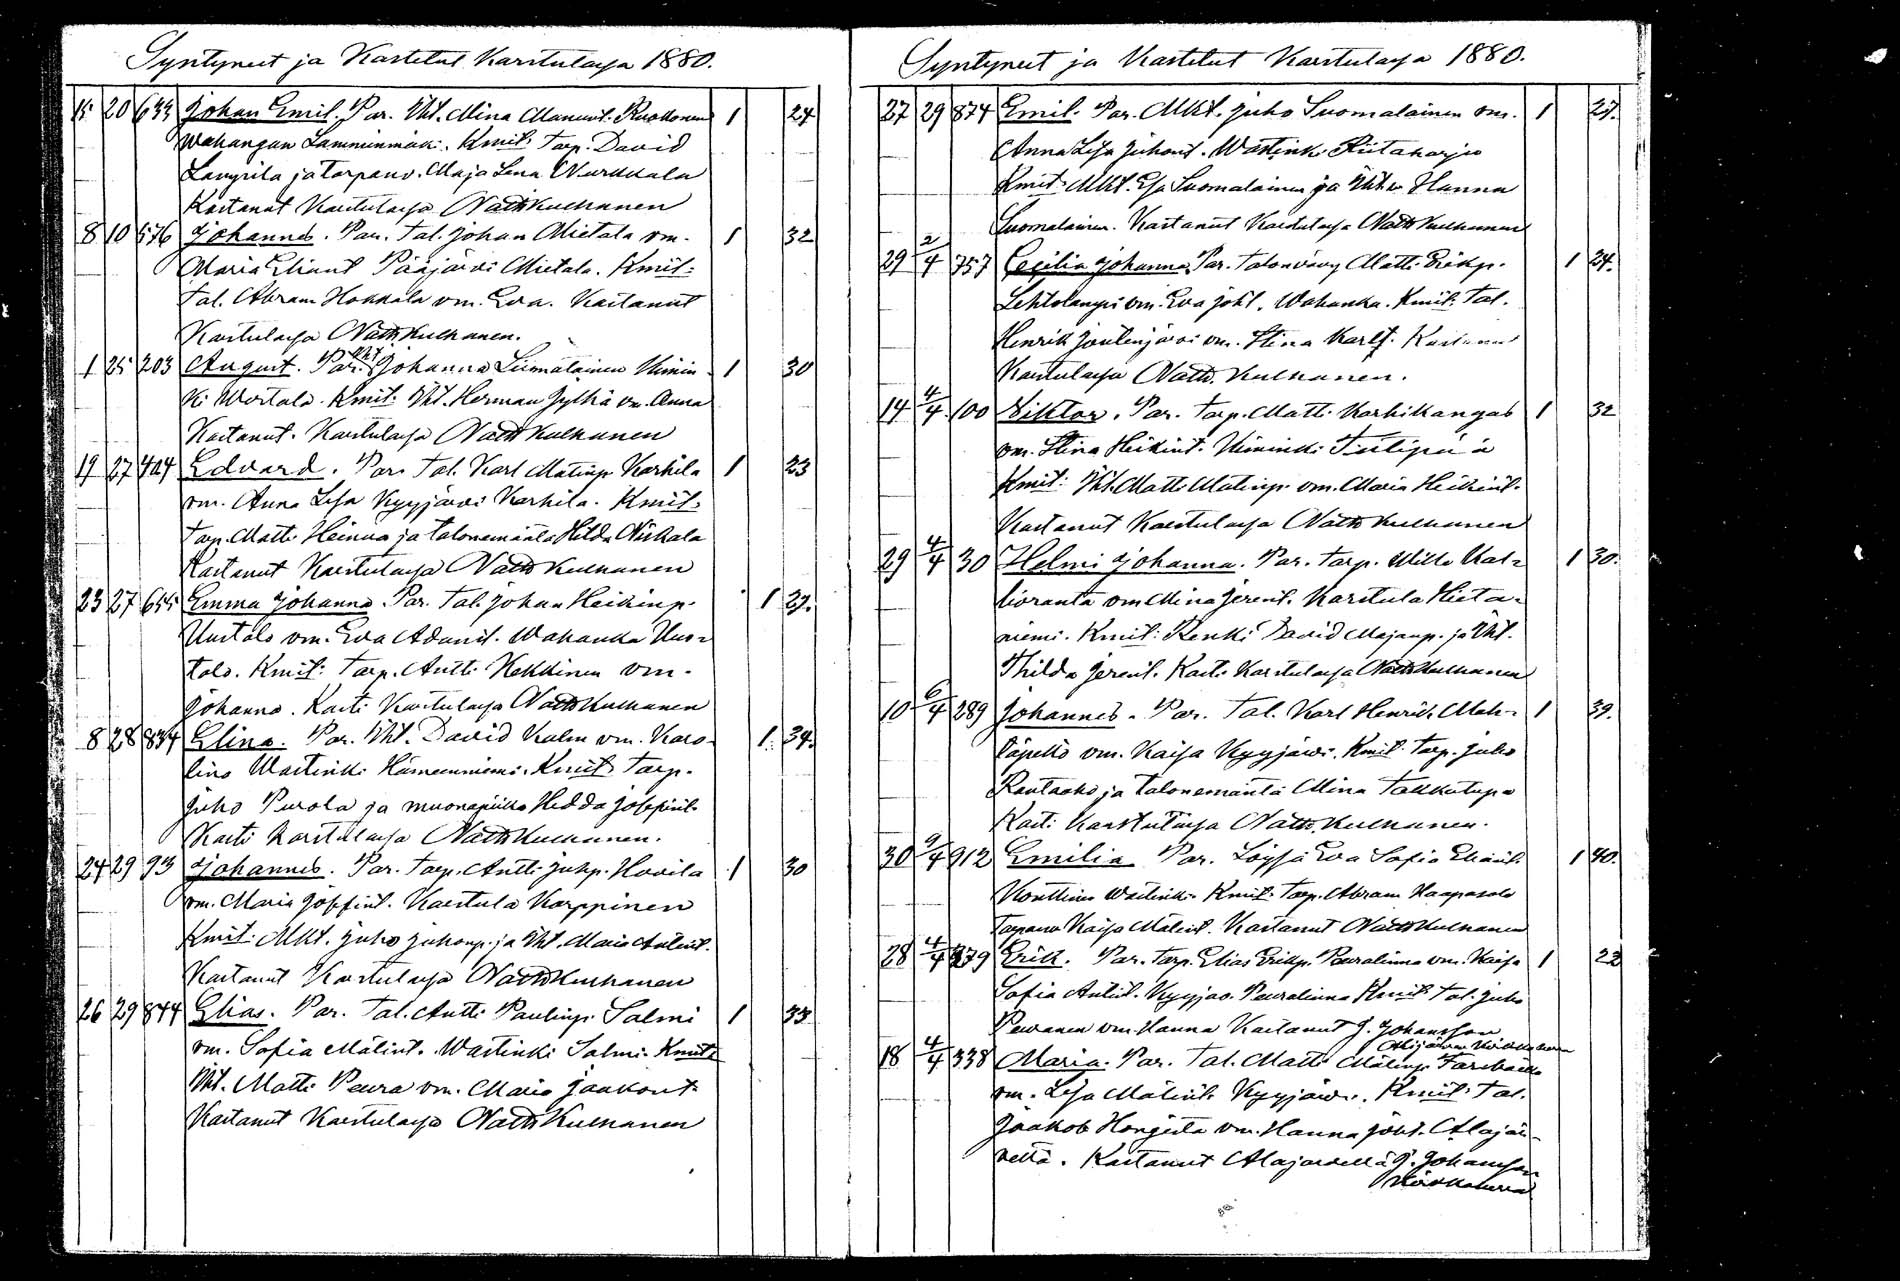 Syntyneet ja Kastetut Karstulassa 1880.
15 20 633 Johan Emil. Par. Iht. Mina Manuent. Ruokonen 1 24
Wahangan Lamminmäki. Kmit: Torp. David
Lampila ja torparv. Maja Lena Nurkkala
Kastanut Karstulassa Nath Kulhanen
8 10 576 Johannes. Par. Tal. Johan Mietala vm. 1 32
Maria Eliant Pääjärvi Mietala. Kmit:
Tal. Abram Hokkala vm. Eva. Kastanut
Karstulassa Nath Kulhanen.
1 25 203 August. Par. Iht Johanna Liimatainen Kimin- 1 30
ki Wertala. Kmit: Iht. Herman Jylhä vm. Anna
Kastanut. Karstulassa Nath Kulhanen
19 27 404 Edvard. Par. Tal. Karl Matinp. Karhila 1 23
vm. Anna Lesa Kyyjärvi Karhila. Kmit:
Torp. Matti Heinua ja talonemäntä Hilda Niskala
Kastanut Karstulassa Nath Kulhanen
23 27 655 Emma Johanna. Par. Tal. Johan Heikinp. 1 27.
Uustalo vm. Eva Adamit. Wahanka Uus-
talo. Kmit: Torp. Antti Kekkinen vm.
Johanna. Kasti Karstulassa Nath Kulhanen
8 28 834 Elina. Par. Iht. David Kalm vm. Karo- 1 34.
lina Wastinki Hämeenniemi. Kmit: Torp.
Juho Purola ja muonapiika Hedda Josefint.
Kasti Karstulassa Nath Kulhanen.
24 29 93 Johannes. Par. Torp. Antti Juhp. Hovila 1 30
vm. Maria Josefint. Karstula Korppinen
Kmit: Mkt. Juho Juhonp. ja Iht. Maria Antint.
Kastanut Karstulassa Nath Kulhanen
26 29 844 Elias. Par. Tal. Antti Paulinp. Salmi 1 33
vm. Sofia Mátint. Wastinki Salmi. Kmit:
Iht. Matti Peura vm. Maria Jaakont.
Kastanut Karstulassa Nath Kulhanen
Syntyneet ja Kastetut Karstulassa 1880.
27 29 874 Emil. Par. Mkt. Juho Suomalainen vm. 1 27.
Anna Lesa Juhont. Wastinki Riitaharju
Kmit: Mkt. Esa Suomalainen ja Iht. Hanna
Suomalainen. Kastanut Karstulassa Nath Kulhanen
29 2/4 757 Cecilia Johanna. Par. Talonvävy Matti Erikp. 1 24.
Lehtolampi vm. Eva Joh't. Wahanka. Kmit: Tal.
Henrik Joutenjärvi vm. Stina Karlt. Kastanut
Karstulassa Nath. Kulhanen.
14 4/4 100 Viktor. Par. Torp. Matti Karhikangas 1 32
vm. Stina Heikint. Kiminki Tiilipää
Kmit: Iht. Matti Matinp. vm. Maria Heikint.
Kastanut Karstulassa Nath Kulhanen
29 4/4 30 Helmi Johanna. Par. Torp. Wille Kal- 1 30.
lioranta vm. Mina Jerent. Karstula Hieta-
niemi. Kmit: Renki David Majanp. ja Iht.
Thilda Jerent. Kasti Karstulassa Nath Kulhanen
10 6/4 289 Johannes. Par. Tal. Karl Henrik Mah- 1 39.
lapelto vm. Kaisa Kyyjärvi. Kmit: Torp. Juho
Rautaaho ja talonemäntä Mina Takkutupa
Kasti Karstulassa Nath. Kulhanen.
30 9/4 912 Emilia Par. Loysä Eva Sofia Eliaint. 1 40.
Konttinen Wastinki. Kmit: Torp. Abram Haapasalo
Torparv Kaisa Mátint. Kastanut Nath Kulhanen
28 4/4 379 Erik. Par. Torp. Elias Erikp. Peuralinna vm. Kaisa 1 22
Sofia Antint. Kyyjärv. Peuralinna Kmit: Tal. Juho
Peuranen vm. Hanna Kastanut J. Johansson
Alajärven Kirkkoherra
18 4/4 338 Maria. Par. Tal. Matti Mátinp.
vm. Lesa Mátint. Kyyjärvi. Kmit: Tal.
Jaakob Hongista vm. Hanna Joht. Alajär-
veltä. Kastanut Alajärvellä J. Johansson
Kirkkoherra